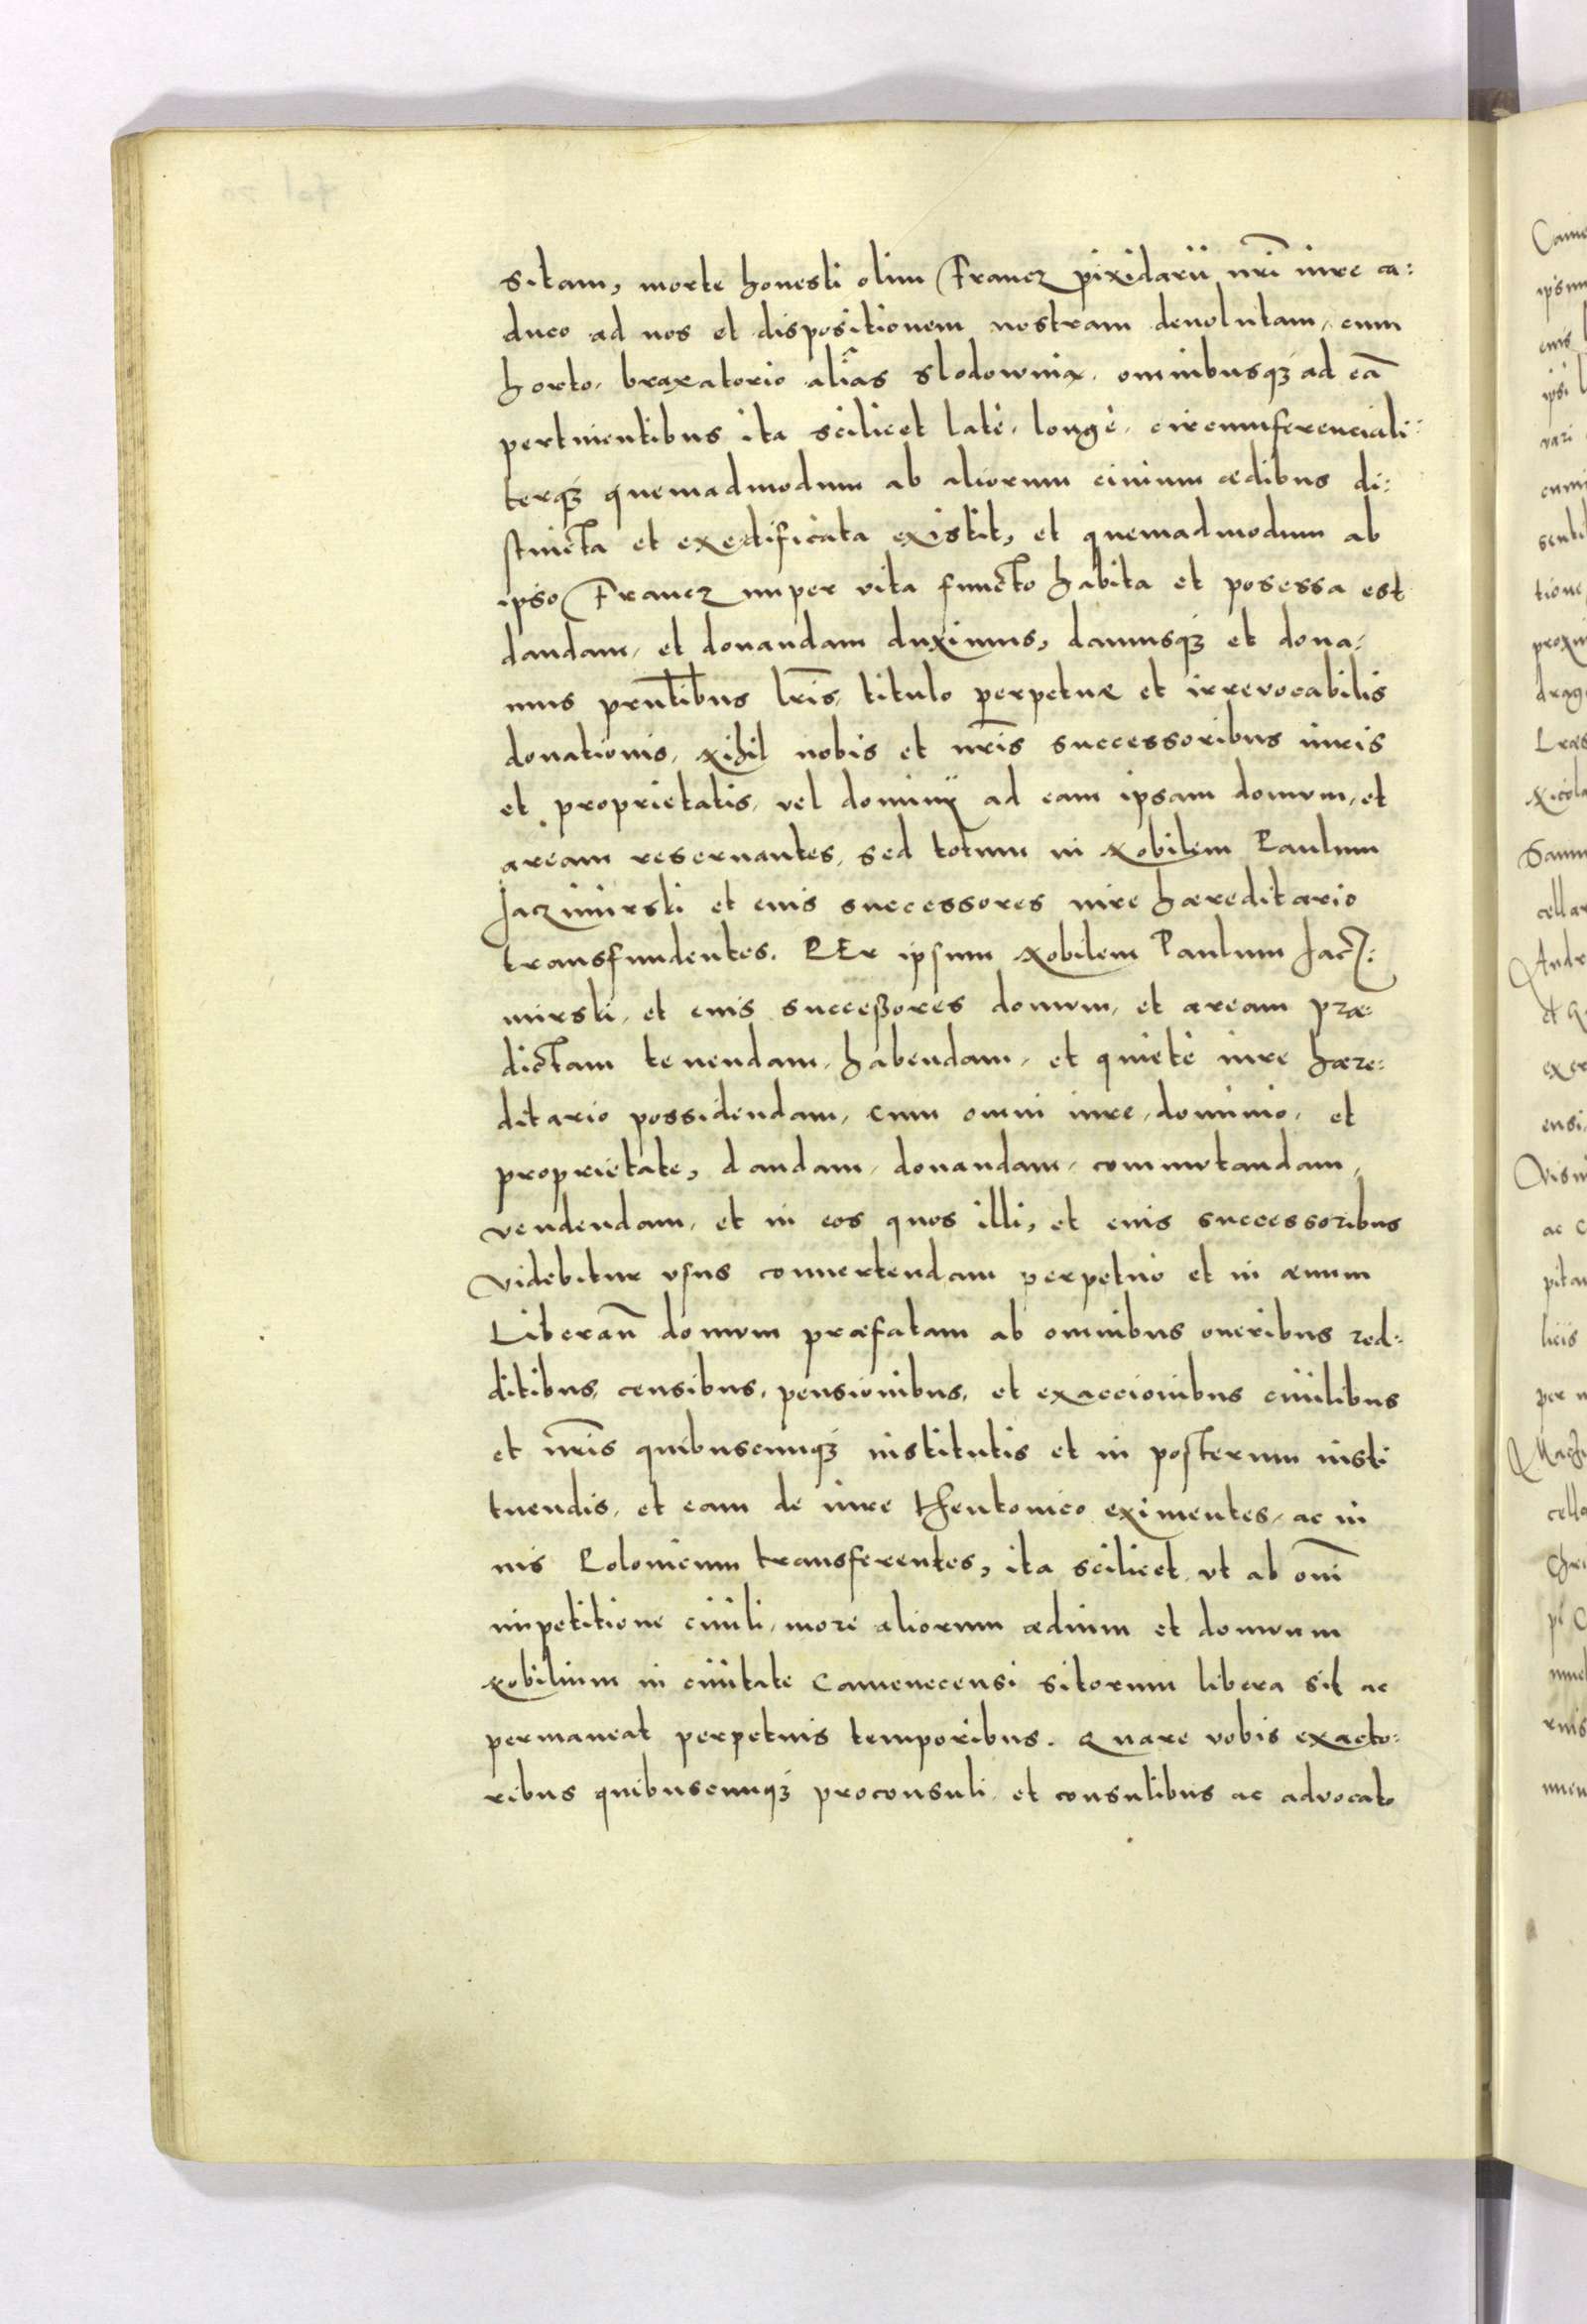 sitam, morte honesti olim Francz pixidarii nrī iure ca:
duco ad nos et dispositionem nostram deuolutam, cum
horto, braxatorio aliãs slodownia, omnibusqꝫ ad eā
pertinentibus ita scilicet latè, longè, circumferenciali:
terqꝫ quemadmodum ab aliorum ciuium ædibus di:
stincta et exedificata existit, et quemadmodum ab
ipso Francz nuper vita functo habita et posessa est
dandam, et donandam duximus, damusqꝫ et dona:
mus prn̄tibus lrīs, titulo perpetuæ et irrevocabilis
donationis, Nihil nobis et nrīs successoribus iuris
et proprietatis, vel dominij ad eam ipsam domum, et
aream reseruantes, sed totum in Nobilem Paulum
Jaczimirski et eius successores iure hæreditario
transfundentes. PEr ipsum Nobilem Paulum Jacz:
mirski, et eius succeßores domum, et aream præ:
dictam tenendam, habendam, et quietè iure hære:
ditario possidendam, cum omni iure, dominio, et
proprietate, dandam, donandam, commutandam,
vendendam, et in eos quos illi, et eius successoribus
videbitur vsus conuertendam perpetuò et in æuum
Liberan̄ domum præfatam ab omnibus oneribus red:
ditibus, censibus, pensionibus, et exaccionibus ciuilibus
et nrīs quibuscunqꝫ institutis et in posterum insti
tuendis, et eam de iure theutonico eximentes, ac in
ius Polonicum transferentes, ita scilicet vt ab om̄i
impetitione ciuili, more aliorum ædium et domuum
Nobilium in ciuitate Camenecensi sitorum libera sit ac
permaneat perpetuis temporibus. Quare vobis exacto:
ribus quibuscunqꝫ proconsuli, et consulibus ac advocato